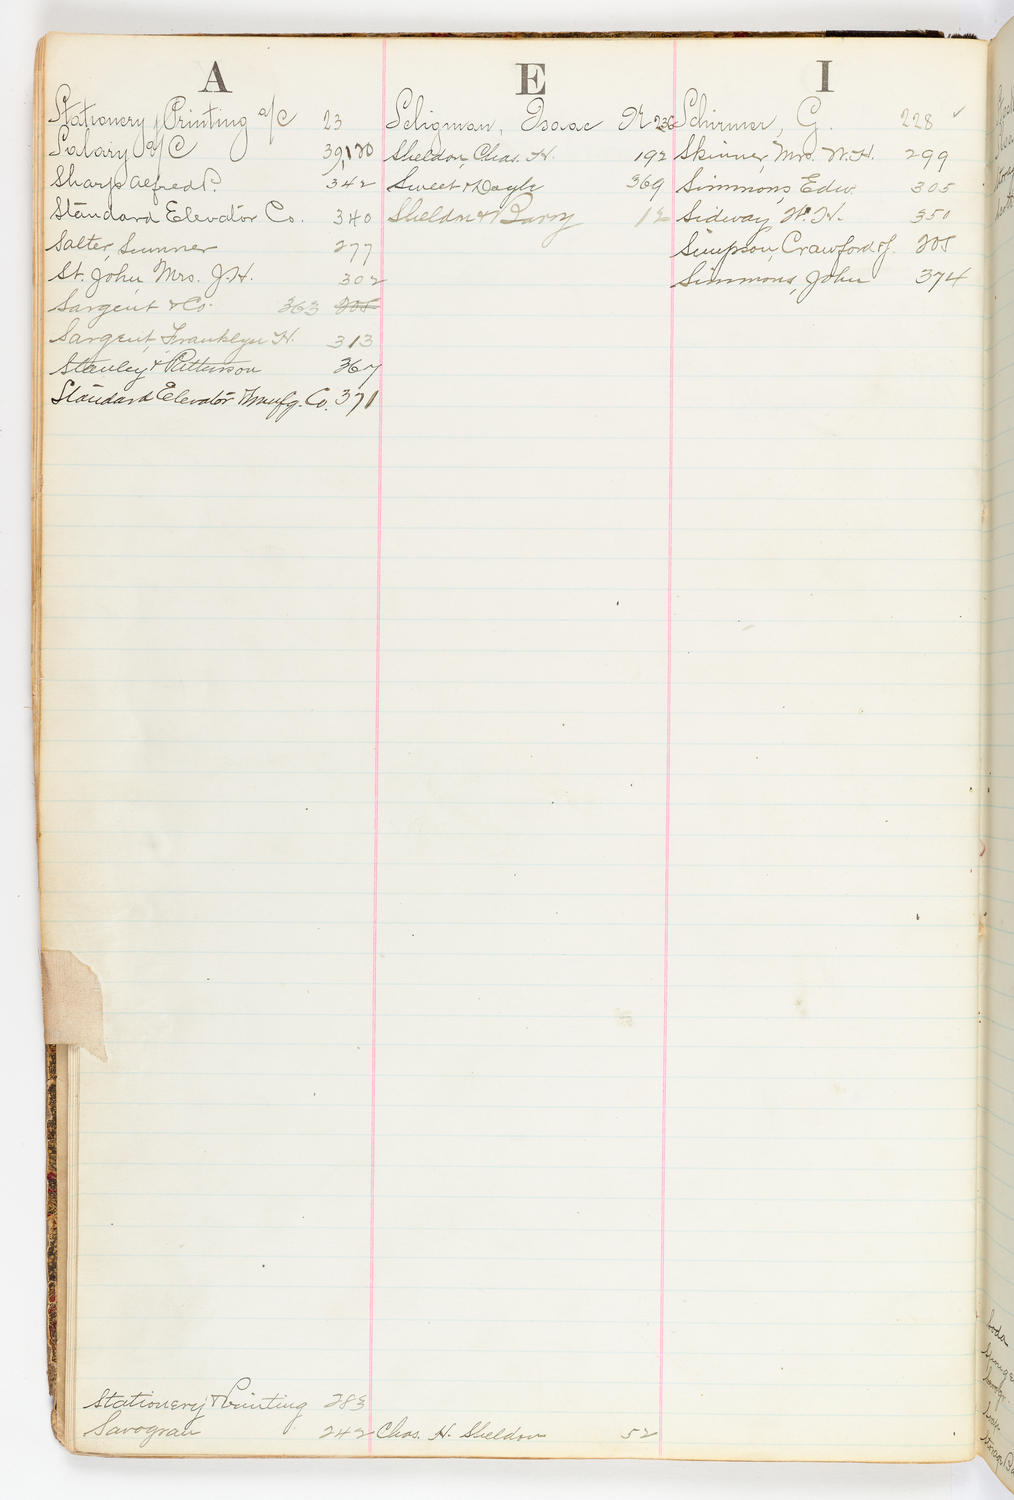 A
Stationery & Printing a/c 23
Salary a/c 39,120
Sharp Alfred P. 342
Standard Elevator Co. 340
Salter, Sumner 277
St. John Mrs. J. H. 302
Sargent & Co. 363 205
Sargent, Franklyn H. 313
Stanley & Patterson 367
Standard Elevator & Manfg. Co. 371
Stationery & Printing 283
Savogran 242
E
Seligman, Isaac N 236
Sheldon, Chas. H. 192
Sweet & Doyle 369
Sheldon & Barry 12
Chas. H. Sheldon 52
I
Schirmer, G. 228 ✓
Skinner, Mrs. W. H. 299
Simmons, Edw. 305
Sidway, W. H. 350
Simpson, Crawford & 205
Simmons, John 374
Soda